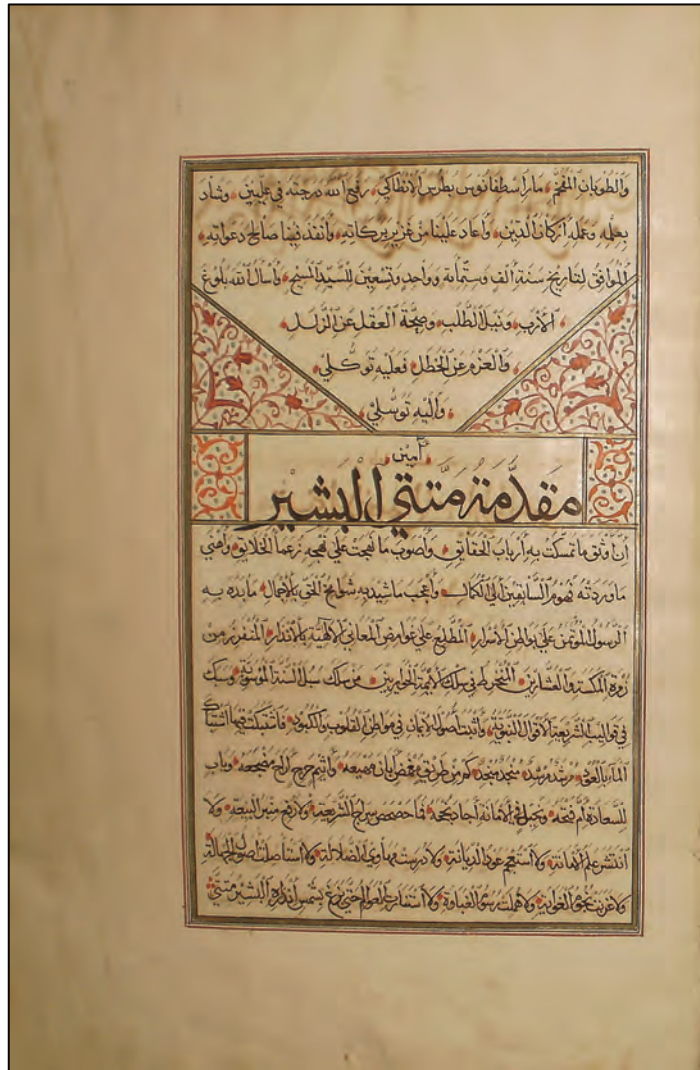 وَالطُّوبَانِ المُفَخَّمِ، مَارِ إِسْطِفَانُوسَ بُطرُسَ الأَنطَاكِيِّ، رَفَعَ اللّٰهُ دَرَجَتَهُ فِي عِلِّيِّينَ، وَشَادَ
بِعِلمِهِ وَعَمَلِهِ أَركَانَ الدِّينِ، وَأَعَادَ عَلَينَا مِنْ غَزِيرِ بَرَكَاتِهِ، وَأَنفَذَ فِينَا صَالِحَ دَعَوَاتِهِ،
المُوَافِقِ لِتَارِيخِ سَنَةِ أَلفٍ وَسِتِّمَائَةٍ وَوَاحِدٍ وَتِسعِينَ لِلسَّيِّدِ المَسِيحِ، وَأَسأَلُ اللّٰهَ بُلُوغَ
الأَرَبِ، وَنَيلَ الطَّلَبِ، وَصِحَّةَ العَقلِ عَنِ الزَّلَلِ
وَالعَزمَ عَنِ الخَطَلِ، فَعَلَيهِ تَوَكُّلِي
وَإِلَيهِ تَوَسُّلِي،
آمِين
مُقَدِّمَةُ مَتَّى البَشِيرِ
إِنَّ أَوثَقَ مَا تَمَسَّكَت بِهِ أَربَابُ الحَقَائِقِ، وَأَصوَبَ مَا نَهَجَت عَلَى نَهجِهِ زُعَمَاءُ الخَلَايِقِ، وَأَهنَى
مَا وَرَدَتهُ فُهُومُ السَّابِقِينَ إِلَى الكَمَالِ، وَأَعجَبَ مَا شُيِّدَ بِهِ شَوَامِخُ الحَقِّ بِالإِجمَالِ، مَا بَدَهَ بِهِ
الرَّسُولُ المُؤتَمَنُ عَلَى بَوَاطِنِ الأَسرَارِ، المُطَّلِعُ عَلَى غَوَامِضِ المَعَانِي الإِلٰهِيَّةِ بِالإِنذَارِ، المُنفَرِزُ مِن
زُمرَةِ المَكَسَةِ وَالعَشَّارِينَ، المُنخَرِطُ فِي سِلكِ الأَئِمَّةِ الحَوَارِيِّينَ، مَن سَلَكَ سُبُلَ السُّنَّةِ المُوسَوِيَّةِ، وَسَبَكَ
فِي قَوَالِيبِ الشَّرِيعَةِ الأَقوَالَ النَّبَوِيَّةَ، وَأَثبَتَ أُصُولَ الإِيمَانِ فِي مَوَاطِنِ القُلُوبِ وَالكُبُودِ، فَاشتَبَكَت فِيهَا اشتِبَاكَ
المَاءِ بِالعُودِ، مُرشِدٌ مُرشَدٌ، مُنجِدٌ مُنجَدٌ، كَم مِن طَرِيقٍ غَمَضَ أَبَانَ مَهيَعَهُ، وَاثِيمٍ حَرِجٍ أَرَاحَ مَضجَعَهُ، وَبَابٍ
لِلسَّعَادَةِ أَمَّ فَتحَهُ، فَمَا حَصحَصَ سِرَاجُ الشَّرِيعَةِ، وَلَا رُفِعَ مَنبَرُ البِيعَةِ، وَلَا
انتَشَرَ عَلَمُ الأَمَانَةِ، وَلَا عُودُ الدِّيَانَةِ، وَلَا دَرَسَت مَهَاوِي الضَّلَالَةِ، وَلَا استَأصَلَت أُصُولُ الجَهَالَةِ
وَلَا غَرَبَت نُجُومُ الغَوَايَةِ، وَلَا رُسُومُ الغَبَاوَةِ، وَلَا استَنَارَتِ العَوَالِمُ حَتَّى بَزَغَ بِشَمسِ إِنذَارِهِ البَشِيرُ مَتَّى